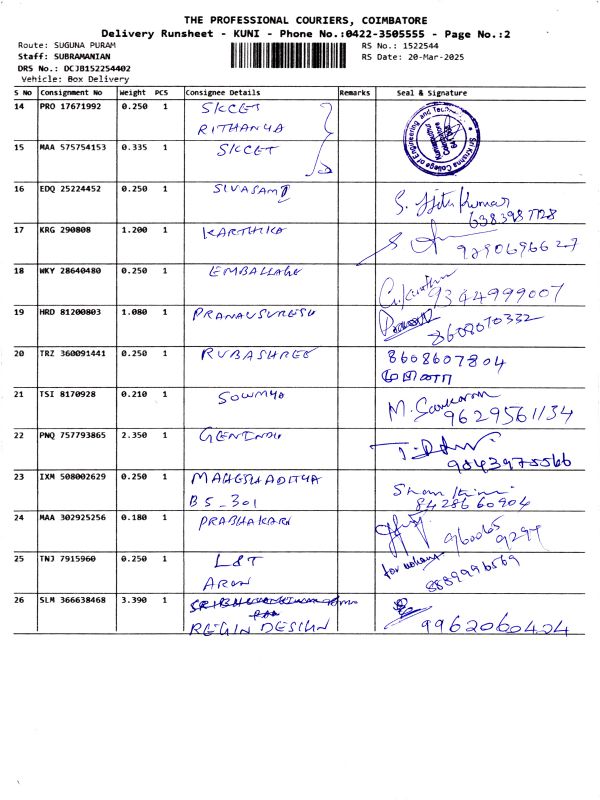 THE PROFESSIONAL COURIERS, COIMBATORE
Delivery Runsheet - KUNI - Phone No.:0422-3505555 - Page No.:2
Route: SUGUNA PURAM RS No.: 1522544
Staff: SUBRAMANIAN RS Date: 20-Mar-2025
DRS No.: DCJB152254402
Vehicle: Box Delivery
S No Consignment No Weight PCS Consignee Details Remarks Seal & Signature
14 PRO 17671992 0.250 1 SKCET
RITHANYA
Sri Krishna College of Engineering and Tech
15 MAA 575754153 0.335 1 SKCET
16 EDQ 25224452 0.250 1 SIVASAMI
17 KRG 290808 1.200 1 KARTHIKA
9890696627
18 WKY 28640480 0.250 1 EMBALLAGE
9344999007
19 HRD 81200803 1.080 1 PRANAVSURESH
8608070332
20 TRZ 360091441 0.250 1 RUBASHREE 8608607804
21 TSI 8170928 0.210 1 SOWMYA M. Sankaran
9629561134
22 PNQ 757793865 2.350 1
9843975566
23 IXM 508002629 0.250 1 MAHESHADITYA
B5-301 8428660904
24 MAA 302925256 0.180 1 PRABHAKARN
960065
9297
25 TNJ 7915960 0.250 1 L&T
ARUN
8889996569
26 SLM 366638468 3.390 1
REGIN DESIGN 9962060424